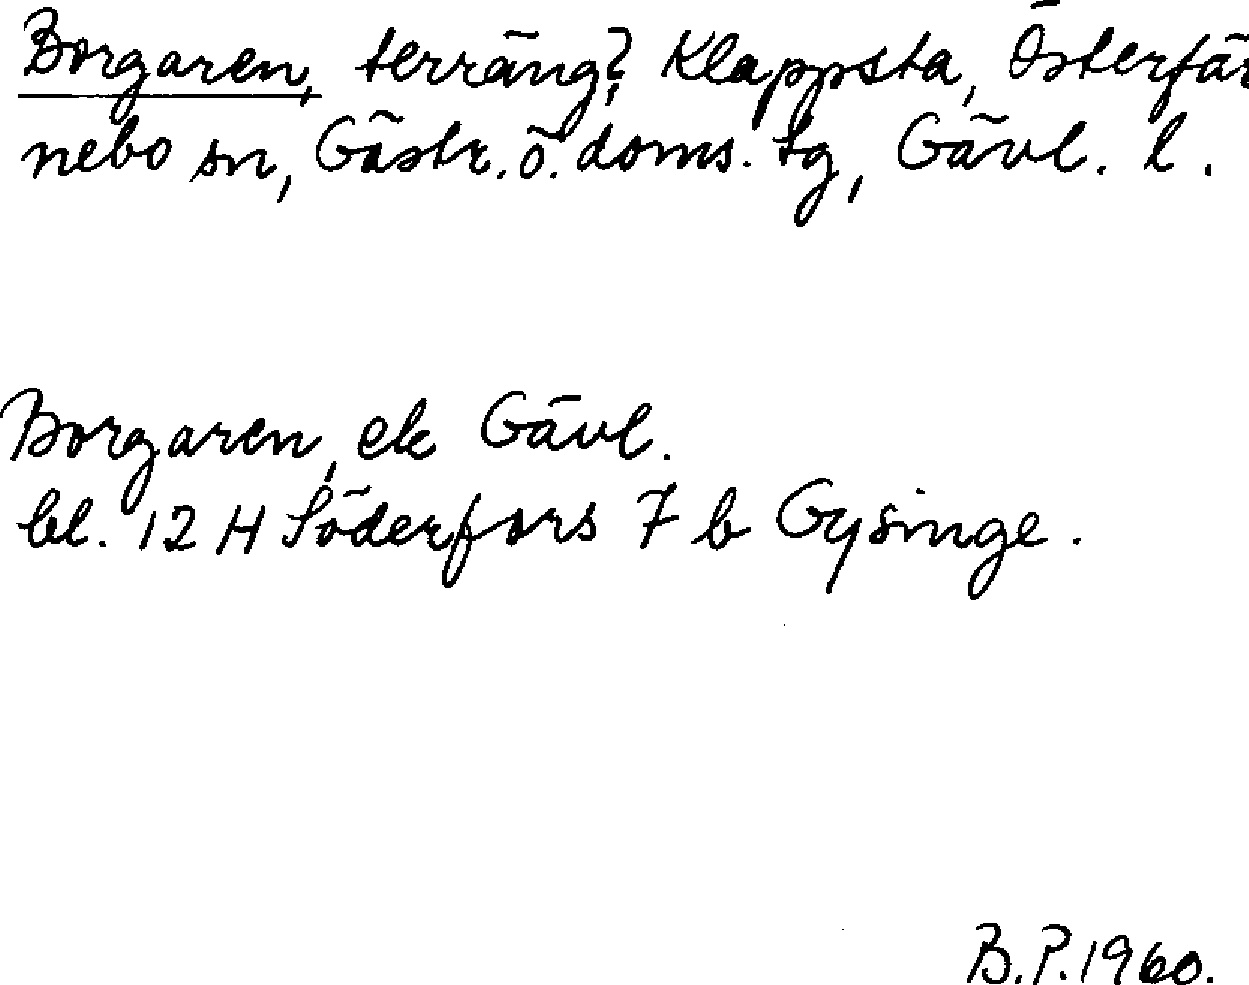 Borgaren, terräng?, Klappsta, Österfär
nebo sn, Gästr. ö. doms. tg, Gävl. l.
Borgaren, ek Gävl.
bl. 12 H Söderfors 7 b Gysinge.
B.P. 1960.